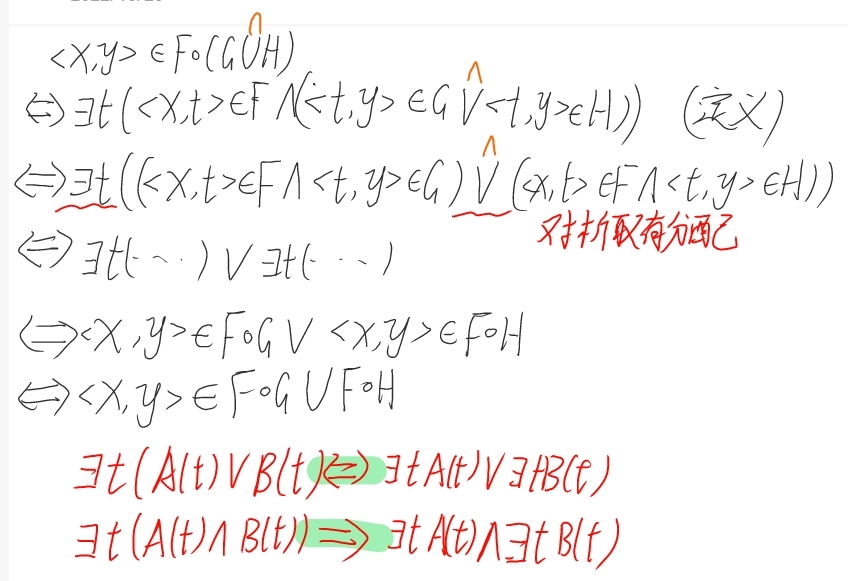 ∩
<x,y>∈F∘(G∪H)
∧
⇔∃t(<x,t>∈F∧(<t,y>∈G∨<t,y>∈H)) (定义)
∧
⇔∃t((<x,t>∈F∧<t,y>∈G)∨(<x,t>∈F∧<t,y>∈H))
对析取有分配
⇔∃t(···)∨∃t(···)
⇔<x,y>∈F∘G∨<x,y>∈F∘H
⇔<x,y>∈F∘G∪F∘H
∃t(A(t)∨B(t)⇔∃tA(t)∨∃tB(t)
∃t(A(t)∧B(t))⇒∃tA(t)∧∃tB(t)